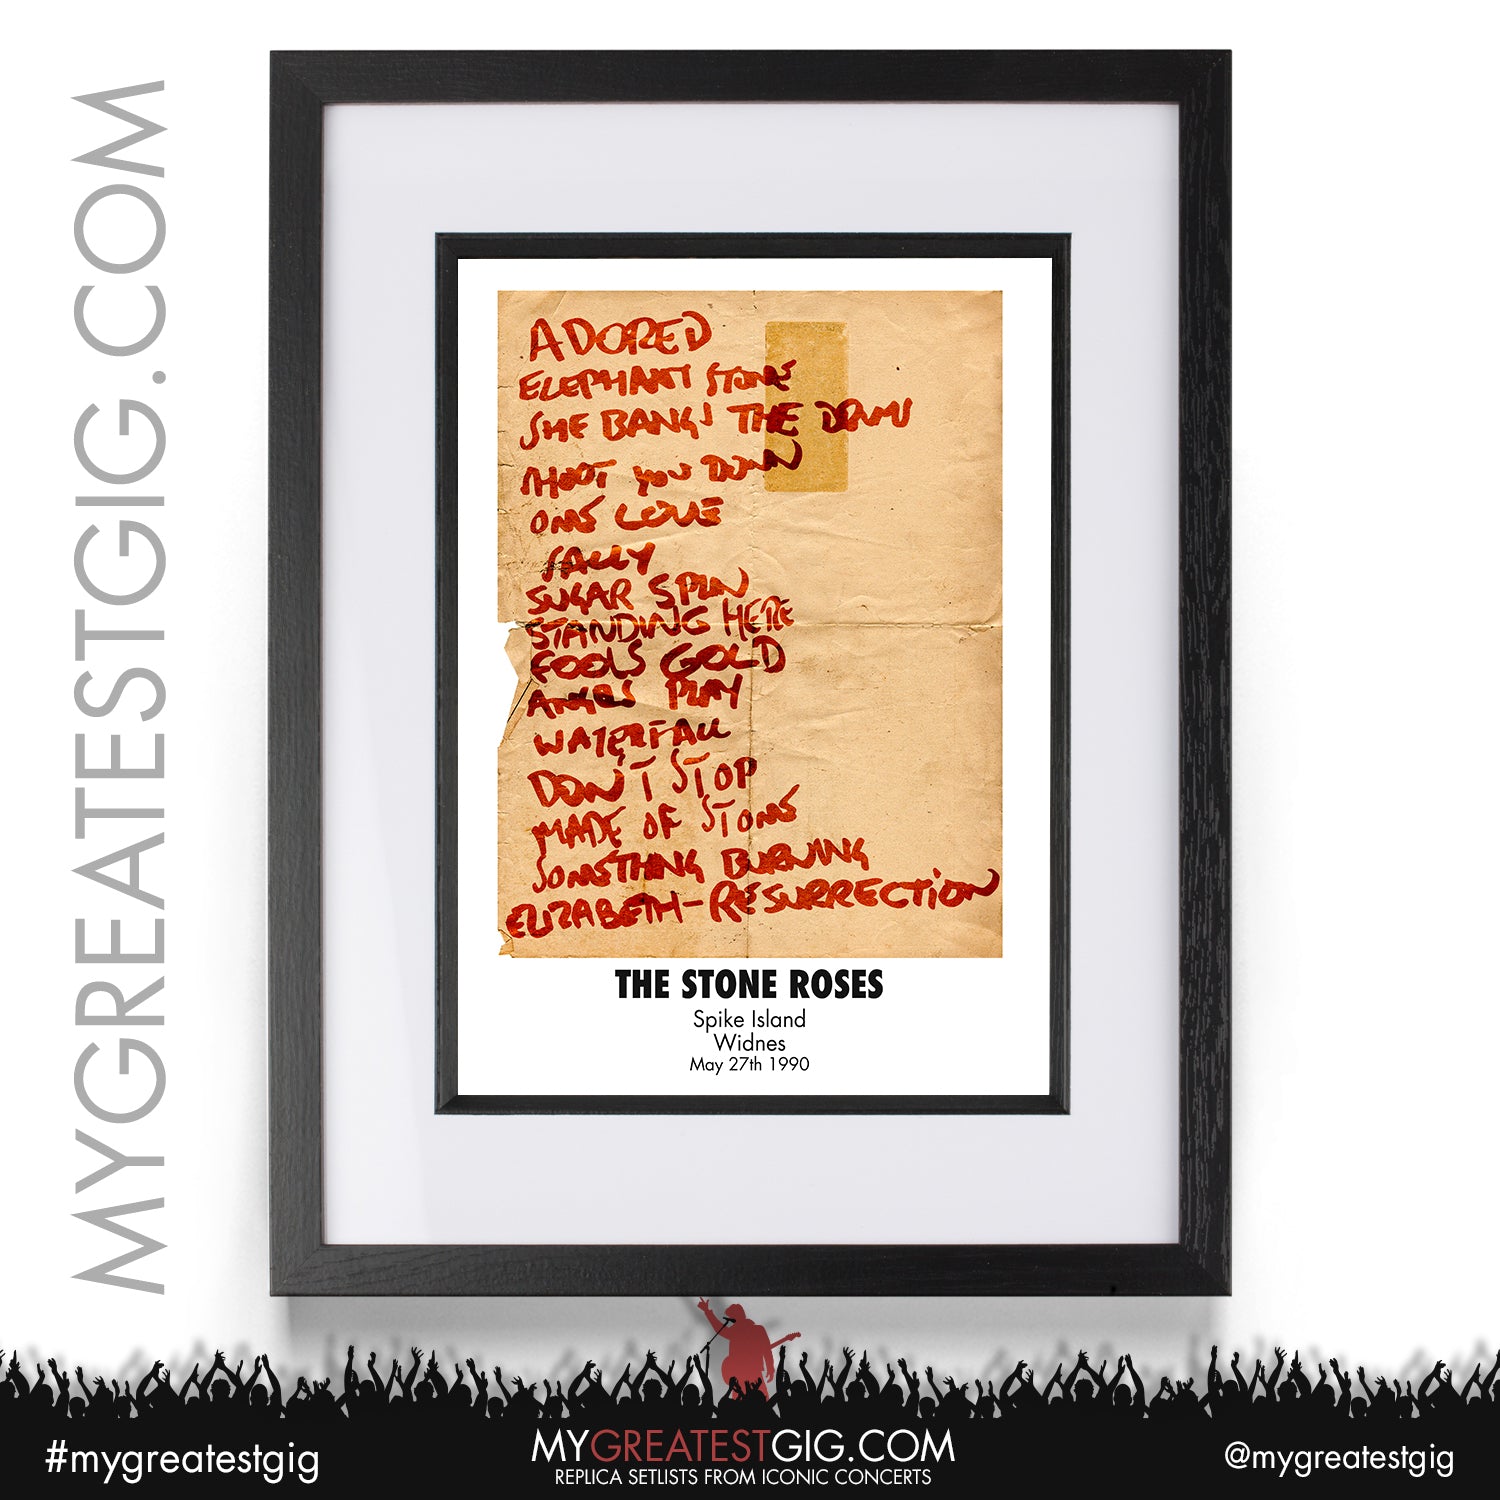 MYGREATESTGIG.COM
ADORED
ELEPHANT STONE
SHE BANGS THE DRUMS
SHOOT YOU DOWN
ONE LOVE
SALLY
SUGAR SPUN
STANDING HERE
FOOLS GOLD
ANGES PLAY
WATERFALL
DON'T STOP
MADE OF STONE
SOMETHING BURNING
ELIZABETH-RESURRECTION
THE STONE ROSES
Spike Island
Widnes
May 27th 1990
#mygreatestgig
MYGREATESTGIG.COM
REPLICA SETLISTS FROM ICONIC CONCERTS
@mygreatestgig